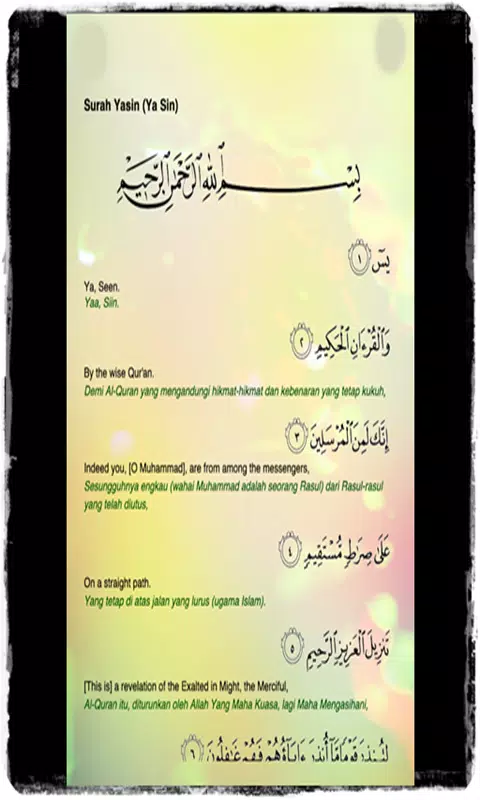 Surah Yasin (Ya Sin)
بِسْمِ اللَّهِ الرَّحْمَٰنِ الرَّحِيمِ
يسٓ ١
Ya, Seen.
Yaa, Siin.
وَٱلْقُرْءَانِ ٱلْحَكِيمِ ٢
By the wise Qur'an.
Demi Al-Quran yang mengandungi hikmat-hikmat dan kebenaran yang tetap kukuh,
إِنَّكَ لَمِنَ ٱلْمُرْسَلِينَ ٣
Indeed you, [O Muhammad], are from among the messengers,
Sesungguhnya engkau (wahai Muhammad adalah seorang Rasul) dari Rasul-rasul
yang telah diutus,
عَلَىٰ صِرَٰطٍ مُّسْتَقِيمٍ ٤
On a straight path.
Yang tetap di atas jalan yang lurus (ugama Islam).
تَنزِيلَ ٱلْعَزِيزِ ٱلرَّحِيمِ ٥
[This is] a revelation of the Exalted in Might, the Merciful,
Al-Quran itu, diturunkan oleh Allah Yang Maha Kuasa, lagi Maha Mengasihani,
لِتُنذِرَ قَوْمًا مَّآ أُنذِرَ ءَابَآؤُهُمْ فَهُمْ غَٰفِلُونَ ٦